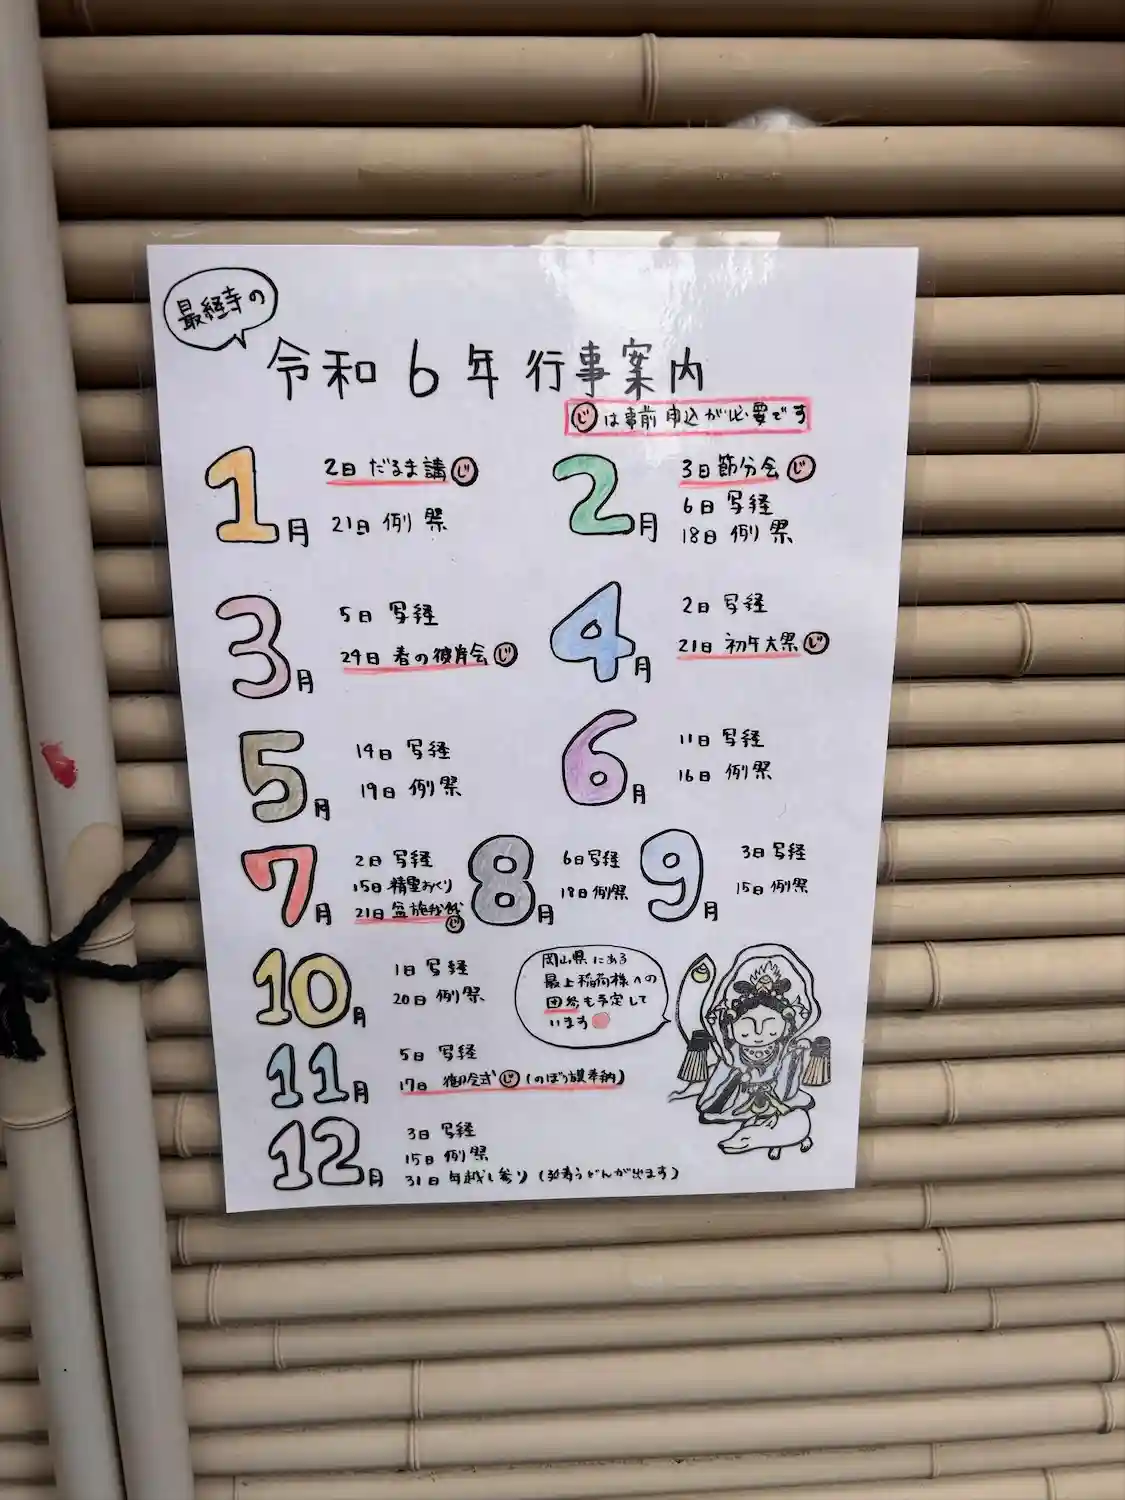 最経寺の
令和6年 行事案内
じは事前申込が必要です
1月
2日 だるま講 じ
21日 例祭
2月
3日 節分会 じ
6日 写経
18日 例祭
3月
5日 写経
24日 春の彼岸会 じ
4月
2日 写経
21日 初午大祭 じ
5月
14日 写経
19日 例祭
6月
11日 写経
16日 例祭
7月
2日 写経
15日 精霊おくり
21日 盆施餓鬼
じ
8月
6日 写経
18日 例祭
9月
3日 写経
15日 例祭
10月
1日 写経
20日 例祭
岡山県にある
最上稲荷様への
団参も予定して
います
11月
5日 写経
17日 御会式 じ (のぼり旗奉納)
12月
3日 写経
15日 例祭
31日 年越し参り (うどんが出ます)